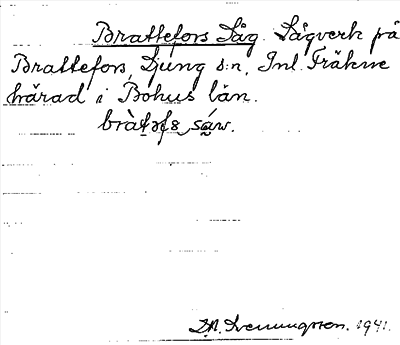 Brattefors Såg. Sågverk på
Brattefors, Ljung s:n, Inl. Fräkne
härad i Bohus län.
bràt̯əfs̯ sáw.
D.A. Svenungsson. 1941.